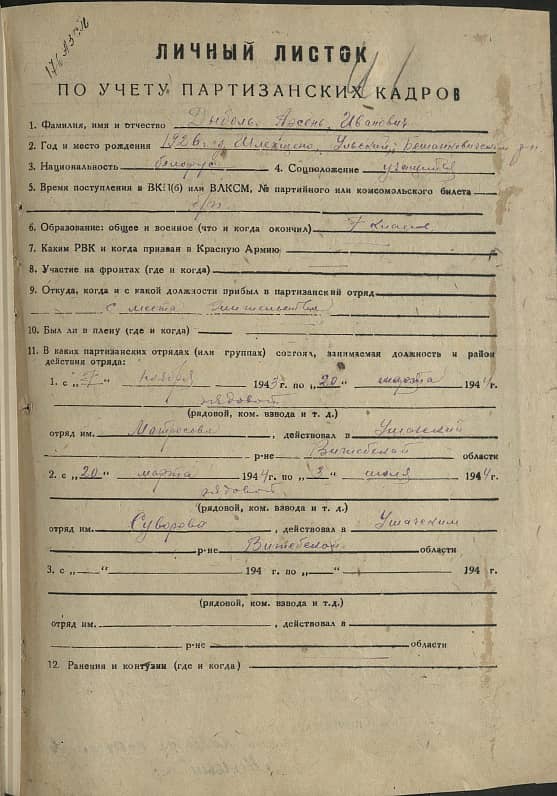 ЛИЧНЫЙ ЛИСТОК
ПО УЧЕТУ ПАРТИЗАНСКИХ КАДРОВ
1. Фамилия, имя и отчество Дыболь Арсень Иванович
2. Год и место рождения 1926 г. Ульский, Бешенковичский р-н
3. Национальность белорус 4. Соцположение учащийся
5. Время поступления в ВКП(б) или ВЛКСМ, № партийного или комсомольского билета
б/п
6. Образование: общее и военное (что и когда окончил) 7 классов
7. Каким РВК и когда призван в Красную Армию
8. Участие на фронтах (где и когда)
9. Откуда, когда и с какой должности прибыл в партизанский отряд
с места жительства
10. Был ли в плену (где и когда)
11. В каких партизанских отрядах (или группах) состоял, занимаемая должность и район
действия отряда:
1. с „7“ ноября 1943 г. по „20“ марта 1944 г.
рядовой
(рядовой, ком. взвода и т. д.)
отряд им. Матросова, действовал в Ушачский
р-не Витебской области
2. с „20“ марта 1944 г. по „2“ июля 1944 г.
рядовой
(рядовой, ком. взвода и т. д.)
отряд им. Суворова, действовал в Ушачским
р-не Витебской области
3. с „ “ 194 г. по „ “ 194 г.
(рядовой, ком. взвода и т.д.)
отряд им. , действовал в
р-не области
12. Ранения и контузии (где и когда)